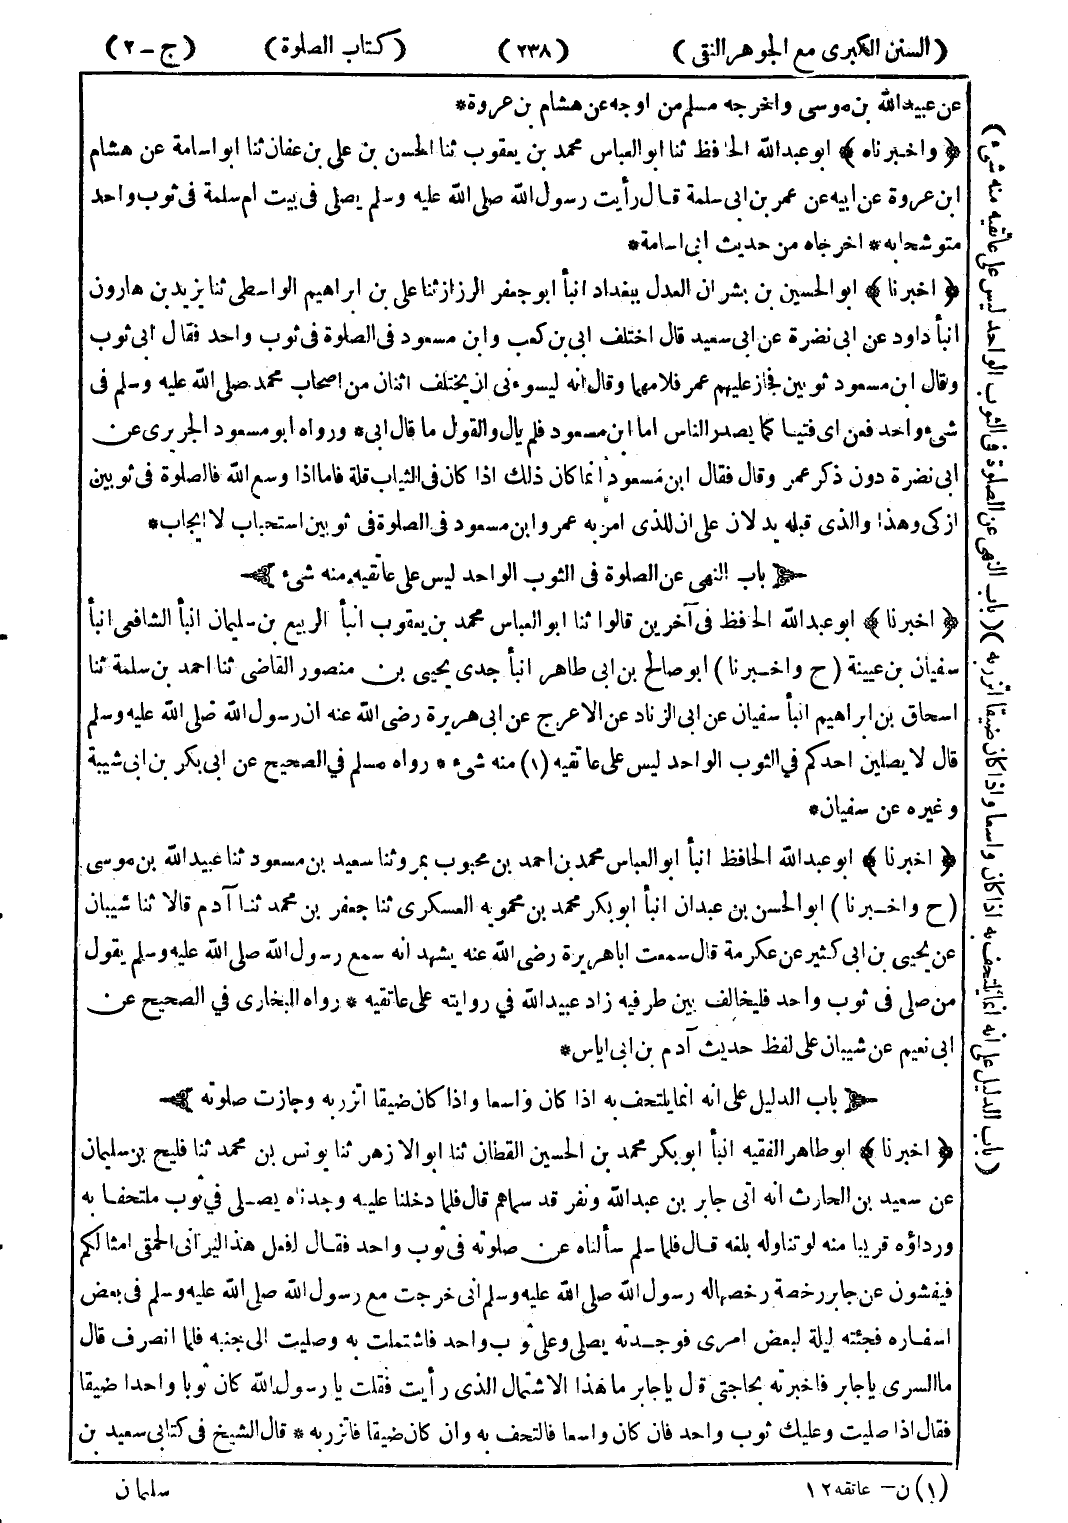 (السنن الكبرى مع الجوهر النقى) (٢٣٨) (كتاب الصلوة) (ج-٢)
عن عبيدالله بن موسى واخرجه مسلم من اوجه عن هشام بن عروة*
﴿ واخبرناه ﴾ ابوعبدالله الحافظ ثنا ابوالعباس محمد بن يعقوب ثنا الحسن بن على بن عفان ثنا ابواسامة عن هشام
ابن عروة عن ابيه عن عمر بن ابى سلمة قال رأيت رسول الله صلى الله عليه وسلم يصلى فى بيت ام سلمة فى ثوب واحد
متوشحابه* اخرجاه من حديث ابى اسامة*
﴿ اخبرنا ﴾ ابوالحسين بن بشران العدل ببغداد انبأ ابوجعفر الرزاز ثنا على بن ابراهيم الواسطى ثنا يزيد بن هارون
انبأ داود عن ابى نضرة عن ابى سعيد قال اختلف ابى بن كعب وابن مسعود فى الصلوة فى ثوب واحد فقال ابى ثوب
وقال ابن مسعود ثوبين فجاز عليهم عمر فلامهما وقال انه ليسوءنى ان يختلف اثنان من اصحاب محمد صلى الله عليه وسلم فى
شىء واحد فعن اى فتيا كما يصدر الناس اما ابن مسعود فلم يأل والقول ما قال ابى* ورواه ابومسعود الجريرى عن
ابى نضرة دون ذكر عمر وقال فقال ابن مسعود انما كان ذلك اذا كان فى الثياب قلة فاما اذا وسع الله فالصلوة فى ثوبين
ازكى وهذا والذى قبله يدلان على ان للذى امر به عمر وابن مسعود فى الصلوة فى ثوبين استحباب لا ايجاب*
باب النهى عن الصلوة فى الثوب الواحد ليس على عاتقيه منه شىء
﴿ اخبرنا ﴾ ابوعبدالله الحافظ فى آخرين قالوا ثنا ابوالعباس محمد بن يعقوب انبأ الربيع بن سليمان انبأ الشافعى انبأ
سفيان بن عيينة (ح واخبرنا) ابوصالح بن ابى طاهر انبأ جدى يحيى بن منصور القاضى ثنا احمد بن سلمة ثنا
اسحاق بن ابراهيم انبأ سفيان عن ابى الزناد عن الاعرج عن ابى هريرة رضى الله عنه ان رسول الله صلى الله عليه وسلم
قال لا يصلين احدكم في الثوب الواحد ليس على عاتقيه (١) منه شىء * رواه مسلم في الصحيح عن ابى بكر بن ابى شيبة
وغيره عن سفيان*
﴿ اخبرنا ﴾ ابوعبدالله الحافظ انبأ ابوالعباس محمد بن احمد بن محبوب بمرو ثنا سعيد بن مسعود ثنا عبيدالله بن موسى
(ح واخبرنا) ابوالحسن بن عبدان انبأ ابوبكر محمد بن محمويه العسكرى ثنا جعفر بن محمد ثنا آدم قالا ثنا شيبان
عن يحيى بن ابى كثير عن عكرمة قال سمعت اباهريرة رضى الله عنه يشهد انه سمع رسول الله صلى الله عليه وسلم يقول
من صلى فى ثوب واحد فليخالف بين طرفيه زاد عبيدالله في روايته على عاتقيه * رواه البخارى في الصحيح عن
ابى نعيم عن شيبان على لفظ حديث آدم بن ابى اياس*
باب الدليل على انه انما يلتحف به اذا كان واسعا واذا كان ضيقا اتزر به وجازت صلوته
﴿ اخبرنا ﴾ ابوطاهر الفقيه انبأ ابوبكر محمد بن الحسين القطان ثنا ابوالازهر ثنا يونس بن محمد ثنا فليح بن سليمان
عن سعيد بن الحارث انه اتى جابر بن عبدالله ونفر قد سماهم قال فلما دخلنا عليه وجدناه يصلى في ثوب ملتحفا به
ورداؤه قريبا منه لو تناوله بلغه قال فلما سلم سألناه عن صلوته فى ثوب واحد فقال لفعل هذا ليرانى الحمقى امثالكم
فيفشون عن جابر رخصة رخصها له رسول الله صلى الله عليه وسلم انى خرجت مع رسول الله صلى الله عليه وسلم فى بعض
اسفاره فجئته ليلة لبعض امرى فوجدته يصلى وعلى ثوب واحد فاشتملت به وصليت الى جنبه فلما انصرف قال
ماالسرى ياجابر فاخبرته بحاجتى قال ياجابر ماهذا الاشتمال الذى رأيت فقلت يا رسول الله كان ثوبا واحدا ضيقا
فقال اذا صليت وعليك ثوب واحد فان كان واسعا فالتحف به وان كان ضيقا فاتزر به * قال الشيخ فى كتابى سعيد بن
(١) ن- عاتقه ١٢
سليمان
(باب النهى عن الصلوة فى الثوب الواحد ليس على عاتقيه منه شىء)
(باب الدليل على انه انما يلتحف به اذا كان واسعا واذا كان ضيقا اتزر به)